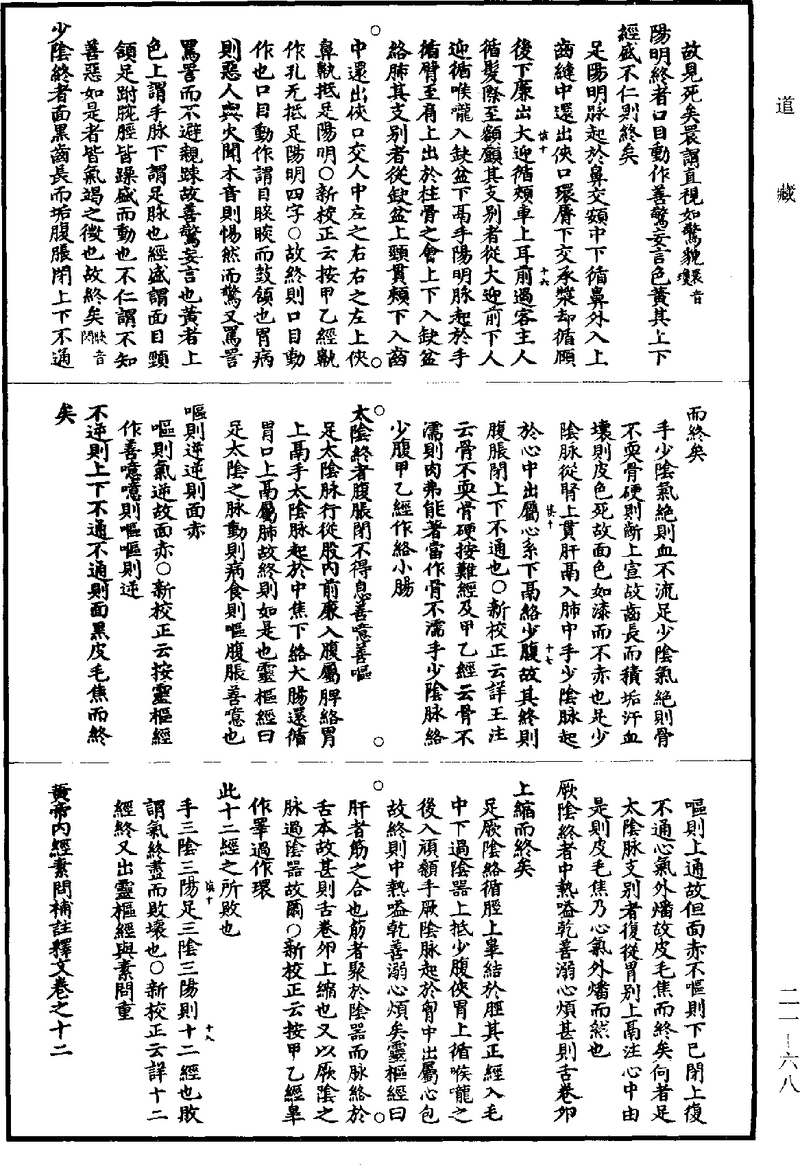 道藏
故見死矣睘謂直視如驚貌睘音瓊
陽明終者口目動作善驚妄言色黃其上下
經盛不仁則終矣
足陽明脉起於鼻交頞中下循鼻外入上
齒縫中還出俠口環脣下交承漿却循頤
後下廉出大迎循頰車上耳前過客主人
循髮際至額顱其支別者從大迎前下人
迎循喉嚨入缺盆下鬲手陽明脉起於手
循臂至肩上出於柱骨之會上下入缺盆
絡肺其支別者從缺盆上頸貫頰下入齒
中還出俠口交人中左之右右之左上俠
鼻鼽抵足陽明○新校正云按甲乙經鼽
作孔无抵足陽明四字○故終則口目動
作也口目動作謂目睒睒而鼓頷也胃病
則惡人與火聞木音則惕然而驚又罵詈
罵詈而不避親踈故善驚妄言也黃者上
色上謂手脉下謂足脉也經盛謂面目頸
頷足跗腕脛皆躁盛而動也不仁謂不知
善惡如是者皆氣竭之徵也故終矣
少陰終者面黑齒長而垢腹脹閉上下不通
而終矣
手少陰氣絕則血不流足少陰氣絕則骨
不耎骨硬則齗上宣故齒長而積垢汗血
壞則皮色死故面色如漆而不赤也足少
陰脉從腎上貫肝鬲入肺中手少陰脉起
於心中出屬心系下鬲絡少腹故其終則
腹脹閉上下不通也○新校正云詳王注
云骨不耎骨硬按難經及甲乙經云骨不
濡則肉弗能著當作骨不濡手少陰脉絡
少腹甲乙經作絡小腸
太陰終者腹脹閉不得息善噫善嘔
足太陰脉行從股內前廉入腹屬脾絡胃
上鬲手太陰脉起於中焦下絡大腸還循
胃口上鬲屬肺故終則如是也靈樞經曰
足太陰之脉動則病食則嘔腹脹善噫也
嘔則逆逆則面赤
嘔則氣逆故面赤○新校正云按靈樞經
作善噫噫則嘔嘔則逆
不逆則上下不通不通則面黑皮毛焦而終
矣
嘔則上通故但面赤不嘔則下已閉上復
不通心氣外燔故皮毛焦而終矣何者足
太陰脉支別者復從胃別上鬲注心中由
是則皮毛焦乃心氣外燔而然也
厥陰終者中熱嗌乾善溺心煩甚則舌卷卵
上縮而終矣
足厥陰絡循脛上睾結於脛其正經入毛
中下過陰器上抵少腹俠胃上循喉嚨之
後入頏顙手厥陰脉起於胷中出屬心包
故終則中熱嗌乾善溺心煩矣靈樞經曰
肝者筋之合也筋者聚於陰器而脉絡於
舌本故甚則舌卷卵上縮也又以厥陰之
脉過陰器故爾○新校正云按甲乙經睾
作睪過作環
此十二經之所敗也
手三陰三陽足三陰三陽則十二經也敗
謂氣終盡而敗壞也○新校正云詳十二
經終又出靈樞經與素問重
黃帝內經素問補註釋文卷之十二
二一—六八